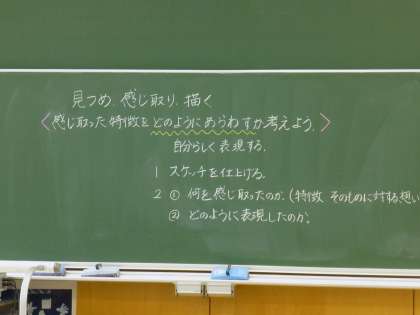 見つめ、感じ取り、描く
〈感じ取った特徴をどのようにあらわすか考えよう。〉
自分らしく表現する。
1 スケッチを仕上げる。
2 ① 何を感じ取ったのか。(特徴 そのものに対する想い
② どのように表現したのか。